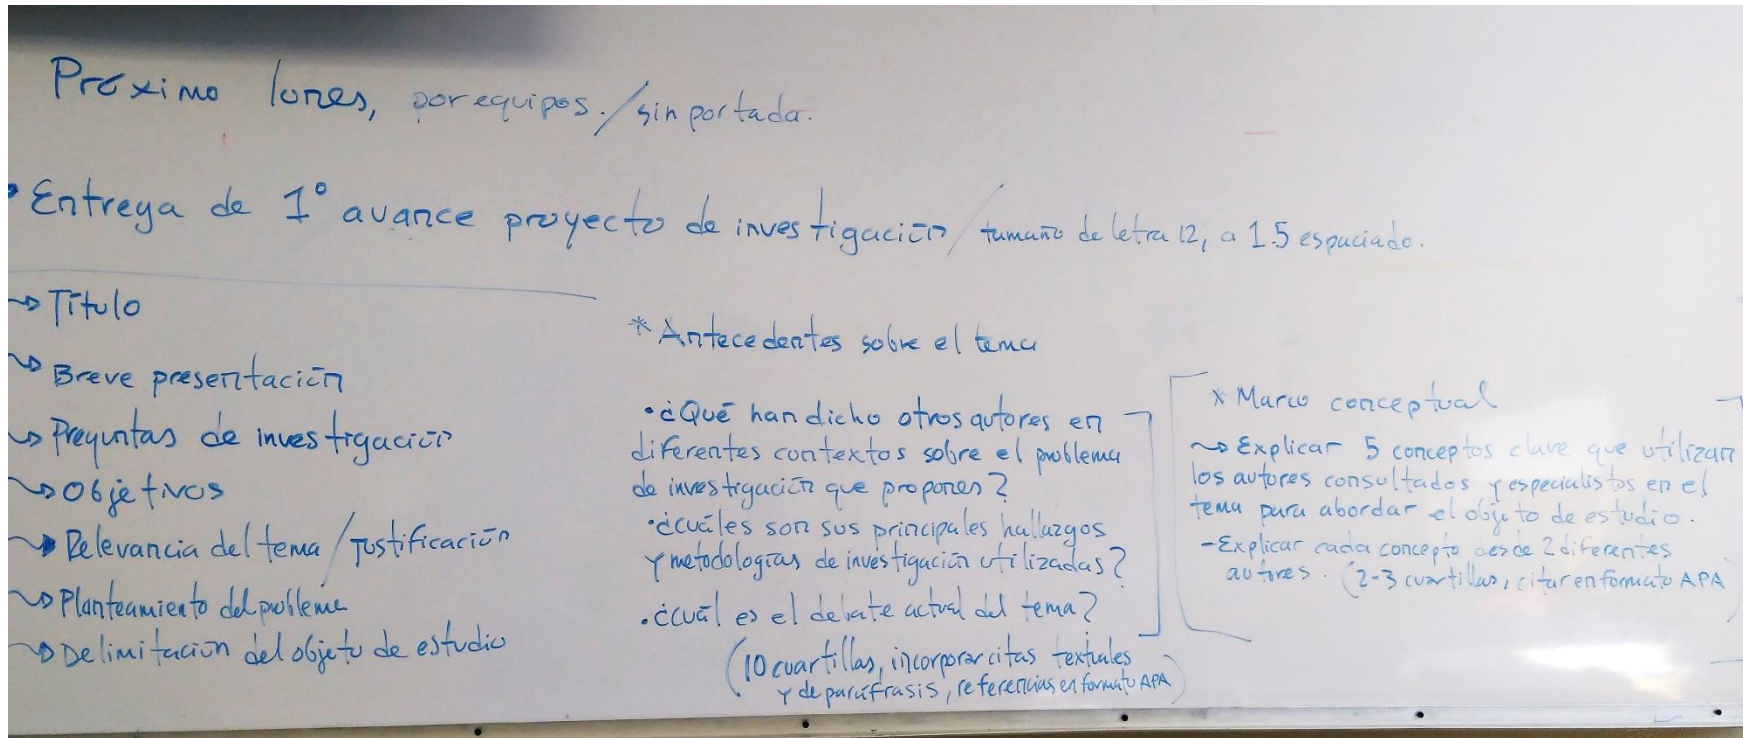 Próximo lunes, por equipos./sin portada.
• Entrega de 1° avance proyecto de investigación / tamaño de letra 12, a 1.5 espaciado.
→ Título
→ Breve presentación
→ Preguntas de investigación
→ Objetivos
→ Relevancia del tema / Justificación
→ Planteamiento del problema
→ Delimitación del objeto de estudio
* Antecedentes sobre el tema
• ¿Qué han dicho otros autores en
diferentes contextos sobre el problema
de investigación que propones?
• ¿cuáles son sus principales hallazgos
y metodologías de investigación utilizadas?
• ¿cuál es el debate actual del tema?
(10 cuartillas, incorporar citas textuales
y de paráfrasis, referencias en formato APA)
* Marco conceptual
→ Explicar 5 conceptos clave que utilizan
los autores consultados y especialistas en el
tema para abordar el objeto de estudio.
- Explicar cada concepto desde 2 diferentes
autores. (2-3 cuartillas, citar en formato APA)